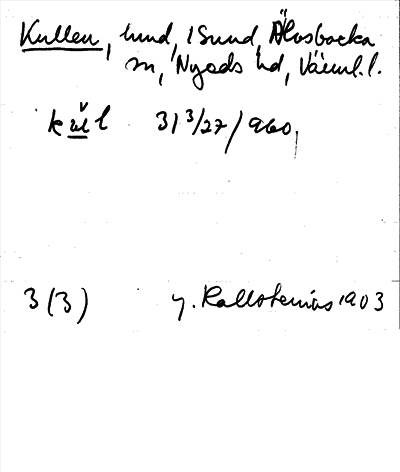 Kullen, hmd, 1 Sund, Älvsbacka
sn, Nyeds hd, Värml. l.
kŭl 31 3/27/960,
3(3) G. Kallstenius 1903